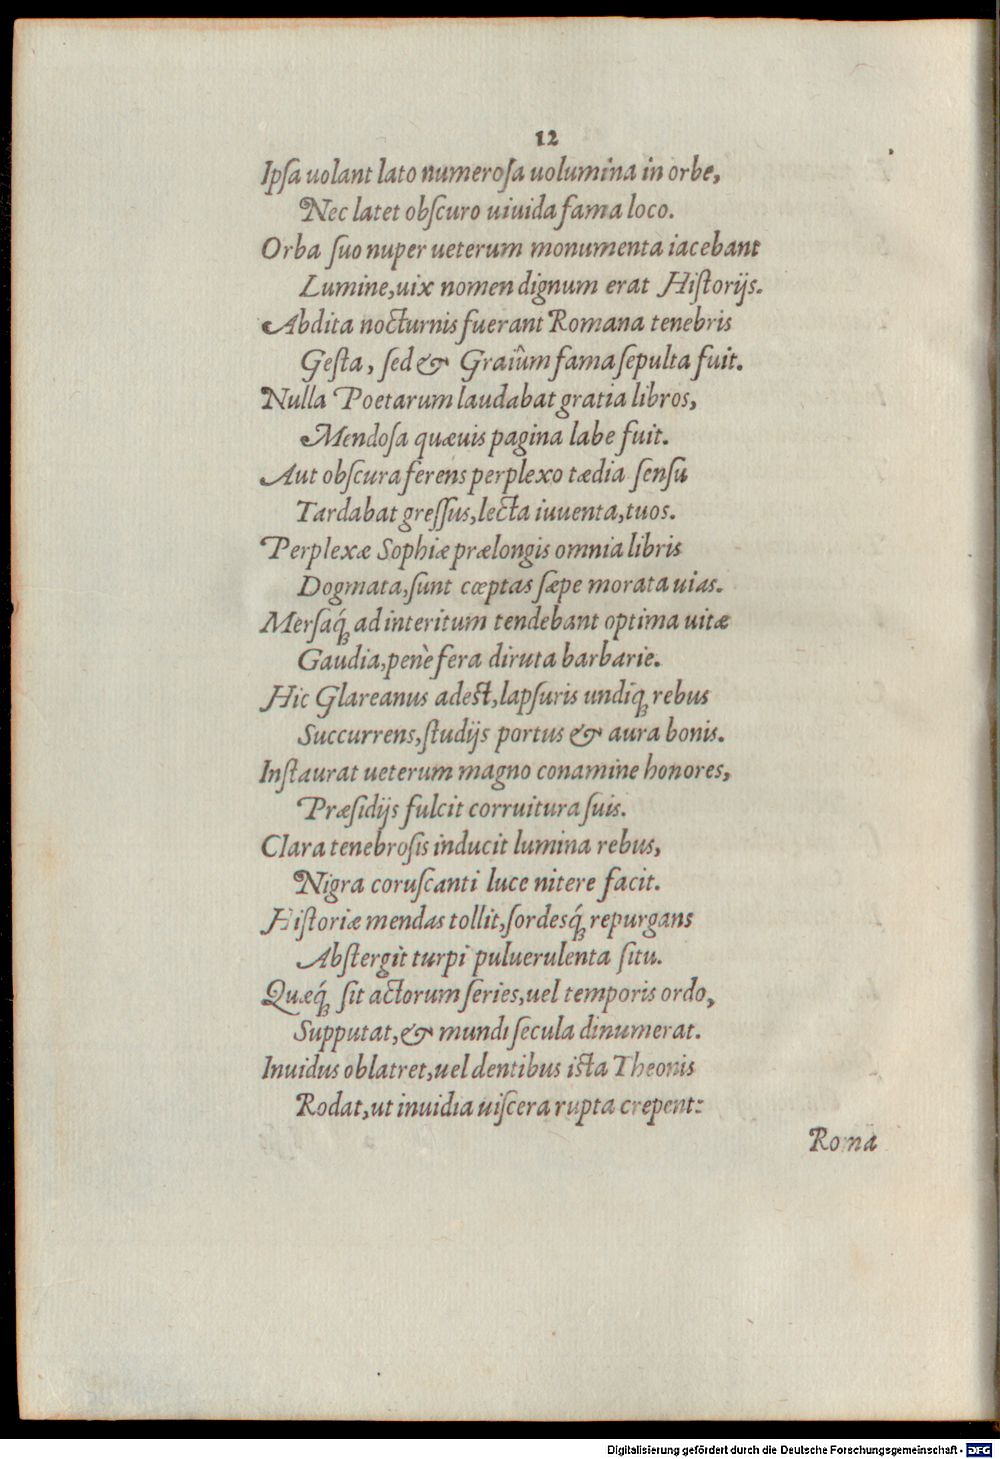 12
Ipsa uolant lato numerosa uolumina in orbe,
Nec latet obscuro uiuida fama loco.
Orba suo nuper ueterum monumenta iacebant
Lumine, uix nomen dignum erat Historijs.
Abdita nocturnis fuerant Romana tenebris
Gesta, sed & Graiûm fama sepulta fuit.
Nulla Poetarum laudabat gratia libros,
Mendosa quæuis pagina labe fuit.
Aut obscura ferens perplexo tædia sensu
Tardabat gressus, lecta iuuenta, tuos.
Perplexæ Sophiæ prælongis omnia libris
Dogmata, sunt cœptas sæpe morata uias.
Mersaq́; ad interitum tendebant optima uitæ
Gaudia, penè fera diruta barbarie.
Hic Glareanus adest, lapsuris undiq; rebus
Succurrens, studijs portus & aura bonis.
Instaurat ueterum magno conamine honores,
Præsidijs fulcit corruitura suis.
Clara tenebrosis inducit lumina rebus,
Nigra coruscanti luce nitere facit.
Historiæ mendas tollit, sordesq́; repurgans
Abstergit turpi puluerulenta situ.
Quæq́; sit actorum series, uel temporis ordo,
Supputat, & mundi secula dinumerat.
Inuidus oblatret, uel dentibus ista Theonis
Rodat, ut inuidia uiscera rupta crepent:
Roma
Digitalisierung gefördert durch die Deutsche Forschungsgemeinschaft - DFG